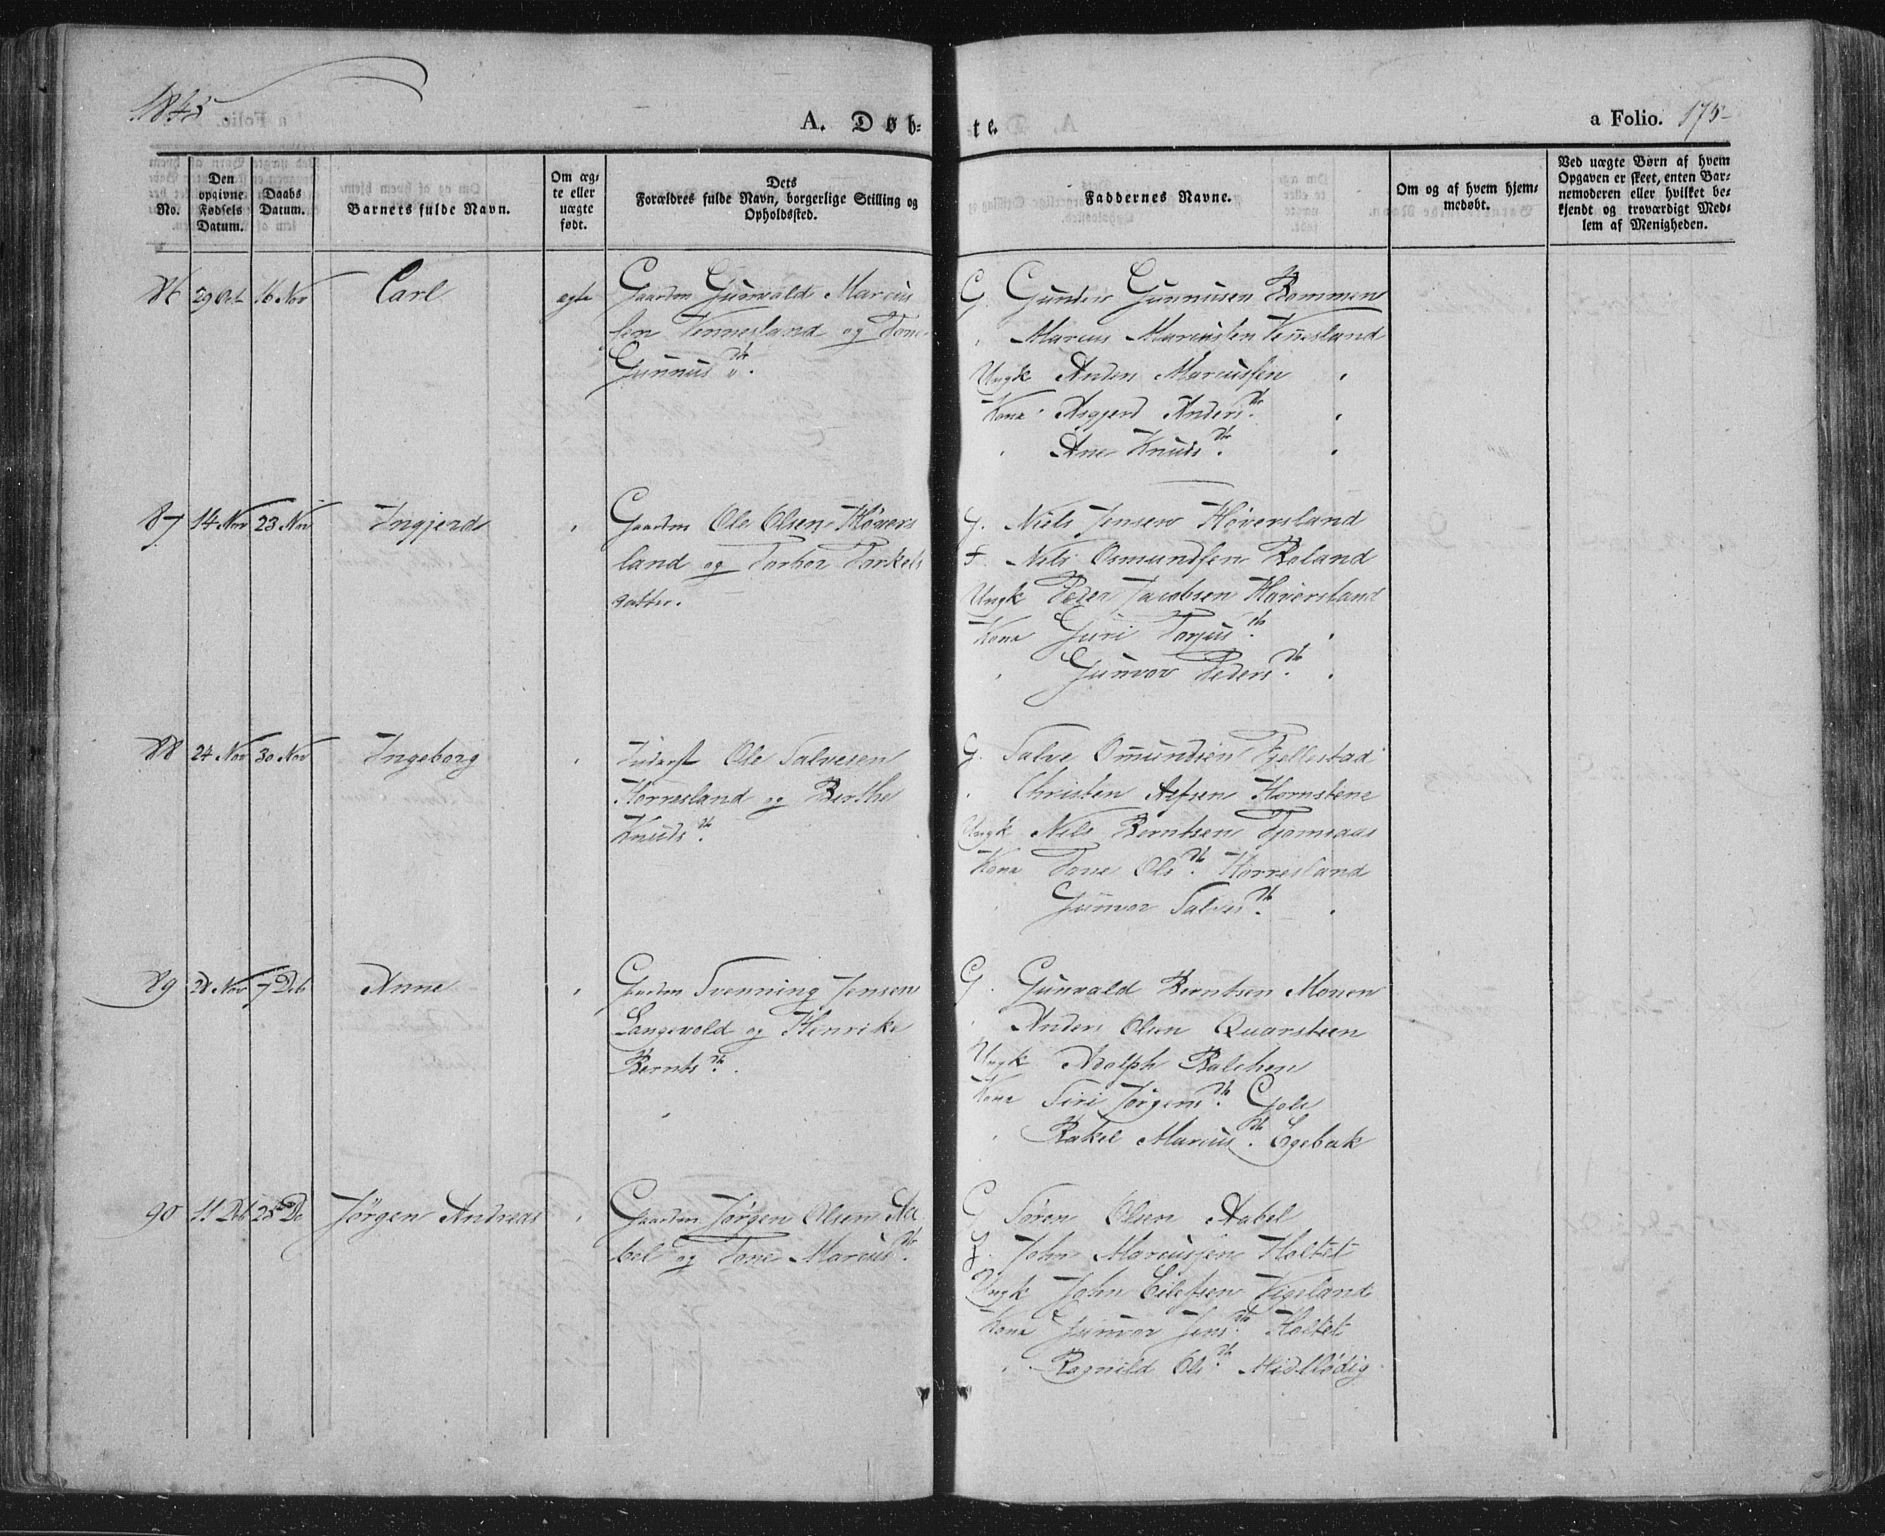 1845
A. Døb-
te.
a Folio. 175
No.
Den opgivne Fødsels Datum.
Daabs Datum.
Barnets fulde Navn.
Om æg-
te eller
uægte
født.
Dets
Forældres fulde Navn, borgerlige Stilling og
Opholdssted.
Faddernes Navne.
Om og af hvem hjem-
medøbt.
Ved uægte Børn af hvem
Opgaven er skeet, enten Bar-
nemoderen eller hvilket be-
kjendt og troværdigt Med-
lem af Menigheden.
86 29 Oct 16 Nov Carl ægte
Gaardm Gunvald Marcus
sen Vennesland og Tone
Gunnus Dr.
G. Gunder Gunnusen Bommen
" Marcus Marcussen Vennesland
Ungk Anders Marcussen "
Kone Asgjerd Anders Dr. "
" Ane Knuds Dr. "
87 14 Nov 23 Nov Ingjerd "
Gaardm Ole Olsen Høvers
land og Torbor Torkels
datter.
G. Niels Jensen Høversland
F. Nils Osmundsen Roland
Ungk Peder Jacobsen Høversland
Kone Guri Torjus Dr. "
" Gunvor Peders Dr. "
88 24 Nov 30 Nov Ingeborg "
Inderst Ole Salvesen
Horresland og Berthe
Knuds Dr.
G. Salve Omundsen Fjellestad
" Christen Hornstene
Ungk Nils Berntsen Tjomsaas
Kone Tone Ols Dr. Horresland
" Gunvor Salves Dr. "
89 28 Nov 7 Deb Anne "
Gaardm Svenning Jensen
Langevold og Henrike
Bernts Dr.
G. Gunvald Berntsen Monen
" Anders Olsen Quarsteen
Ungk Adolph Balchen
Kone Siri Jørgens Dr.
" Rakel Marcus Dr. Egebak
90 11 Deb 28 De Jørgen Andreas "
Gaardm Jørgen Olsen Aa
bel og Tone Marcus Dr.
G Søren Olsen Aabel
G. John Marcussen Holtet
Ungk John Eilefsen Vigeland
Kone Gunvor Jens Dr. Holtet
" Ragnild Ols Dr. Midtbødig